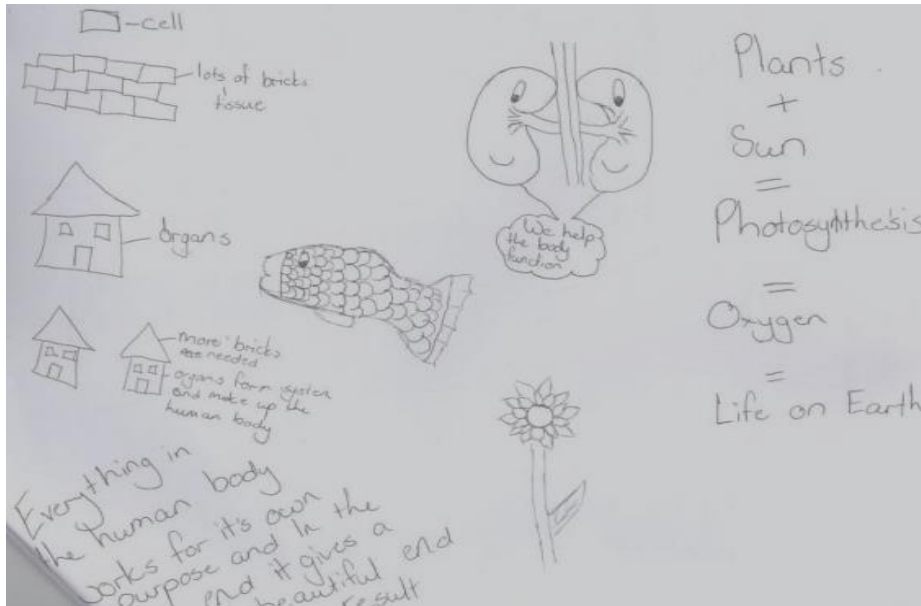 -cell
lots of bricks
tissue
organs
more bricks
are needed
organs form system
and make up the
human body
Everything in
the human body
works for it's own
purpose and in the
end it gives a
beautiful end
result
We help
the body
function
Plants
+
Sun
=
Photosynthesis
=
Oxygen
=
Life on Earth